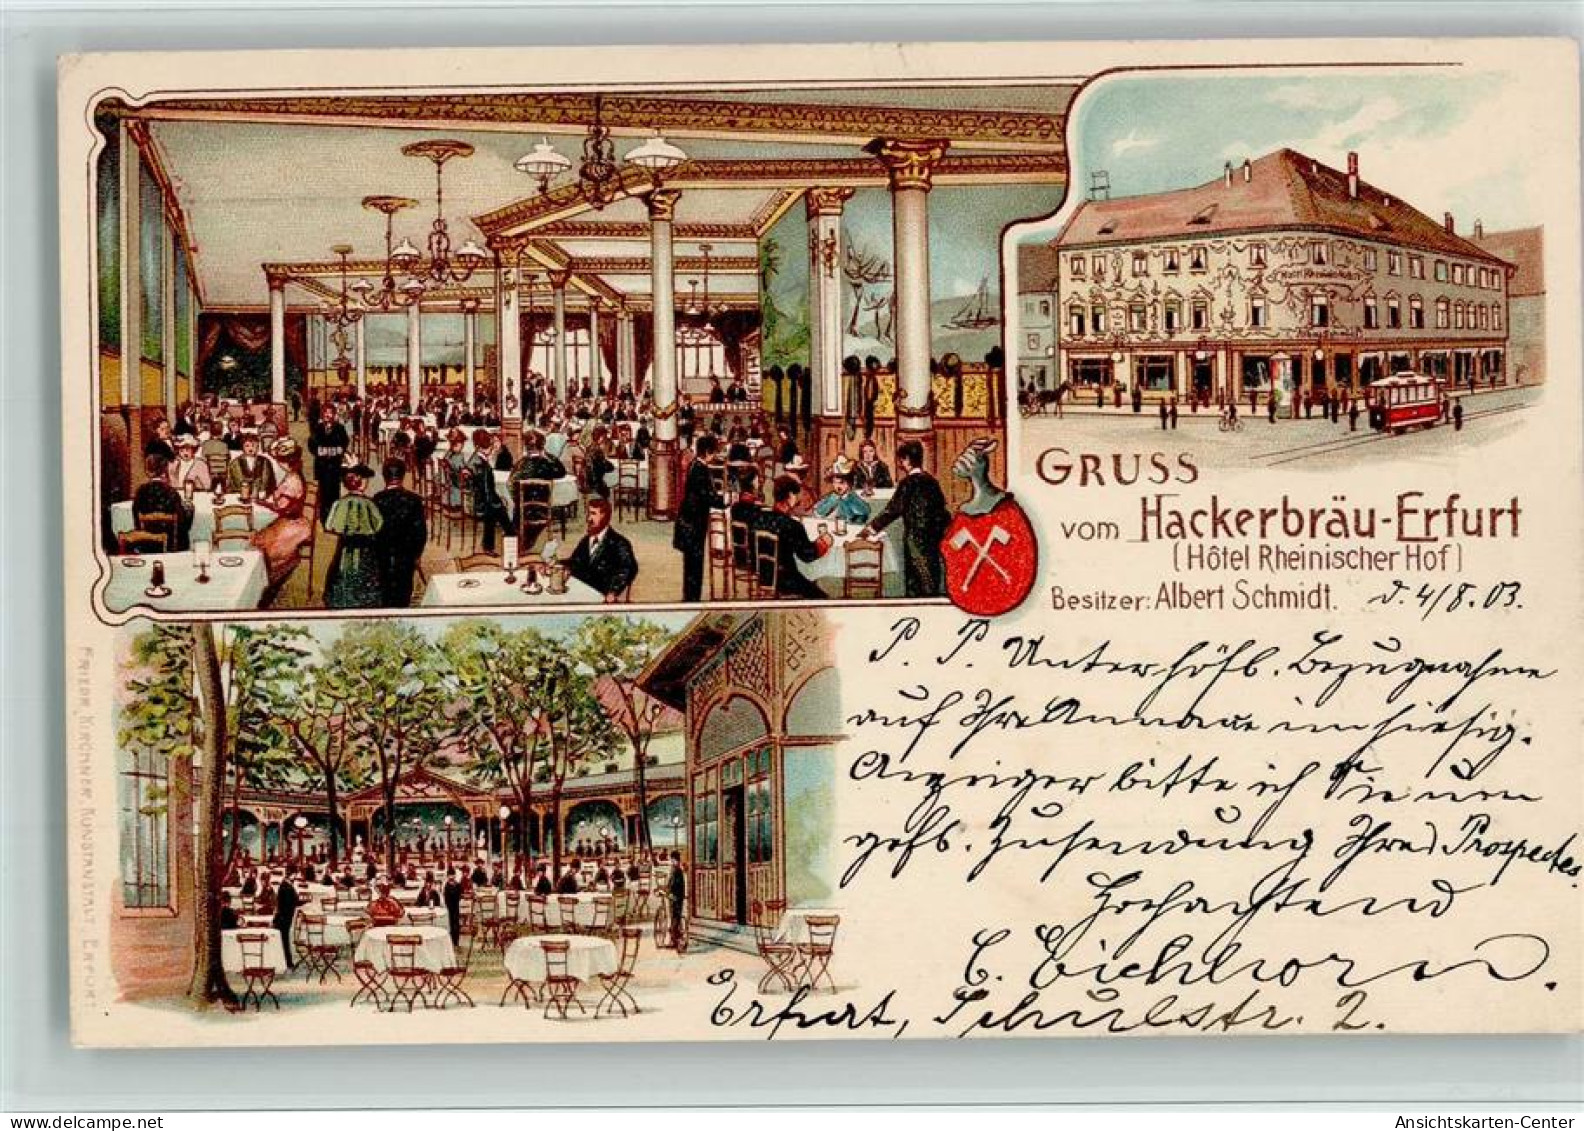 GRUSS
vom Hackerbräu-Erfurt
(Hôtel Rheinischer Hof)
Besitzer: Albert Schmidt. d. 4/8. 03.
P. P. Unterhöfl. Bezugnahme
auf Ihre Annonce im hiesig.
Anzeiger bitte ich Sie um
gefl. Zusendung Ihres Prospectes.
Hochachtend
C. Eichhorn.
Erfurt, Schulstr. 2.
FRIEDR. KIRCHNER, KUNSTANSTALT, ERFURT.
Ansichtskarten-Center